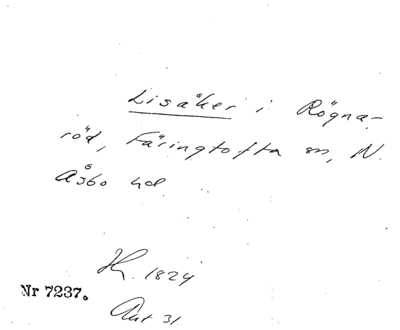 Lisåker i Rögna-
röd, Färingtofta sn, N.
Åsbo hd
1824
Nr 7237.
Akt 31